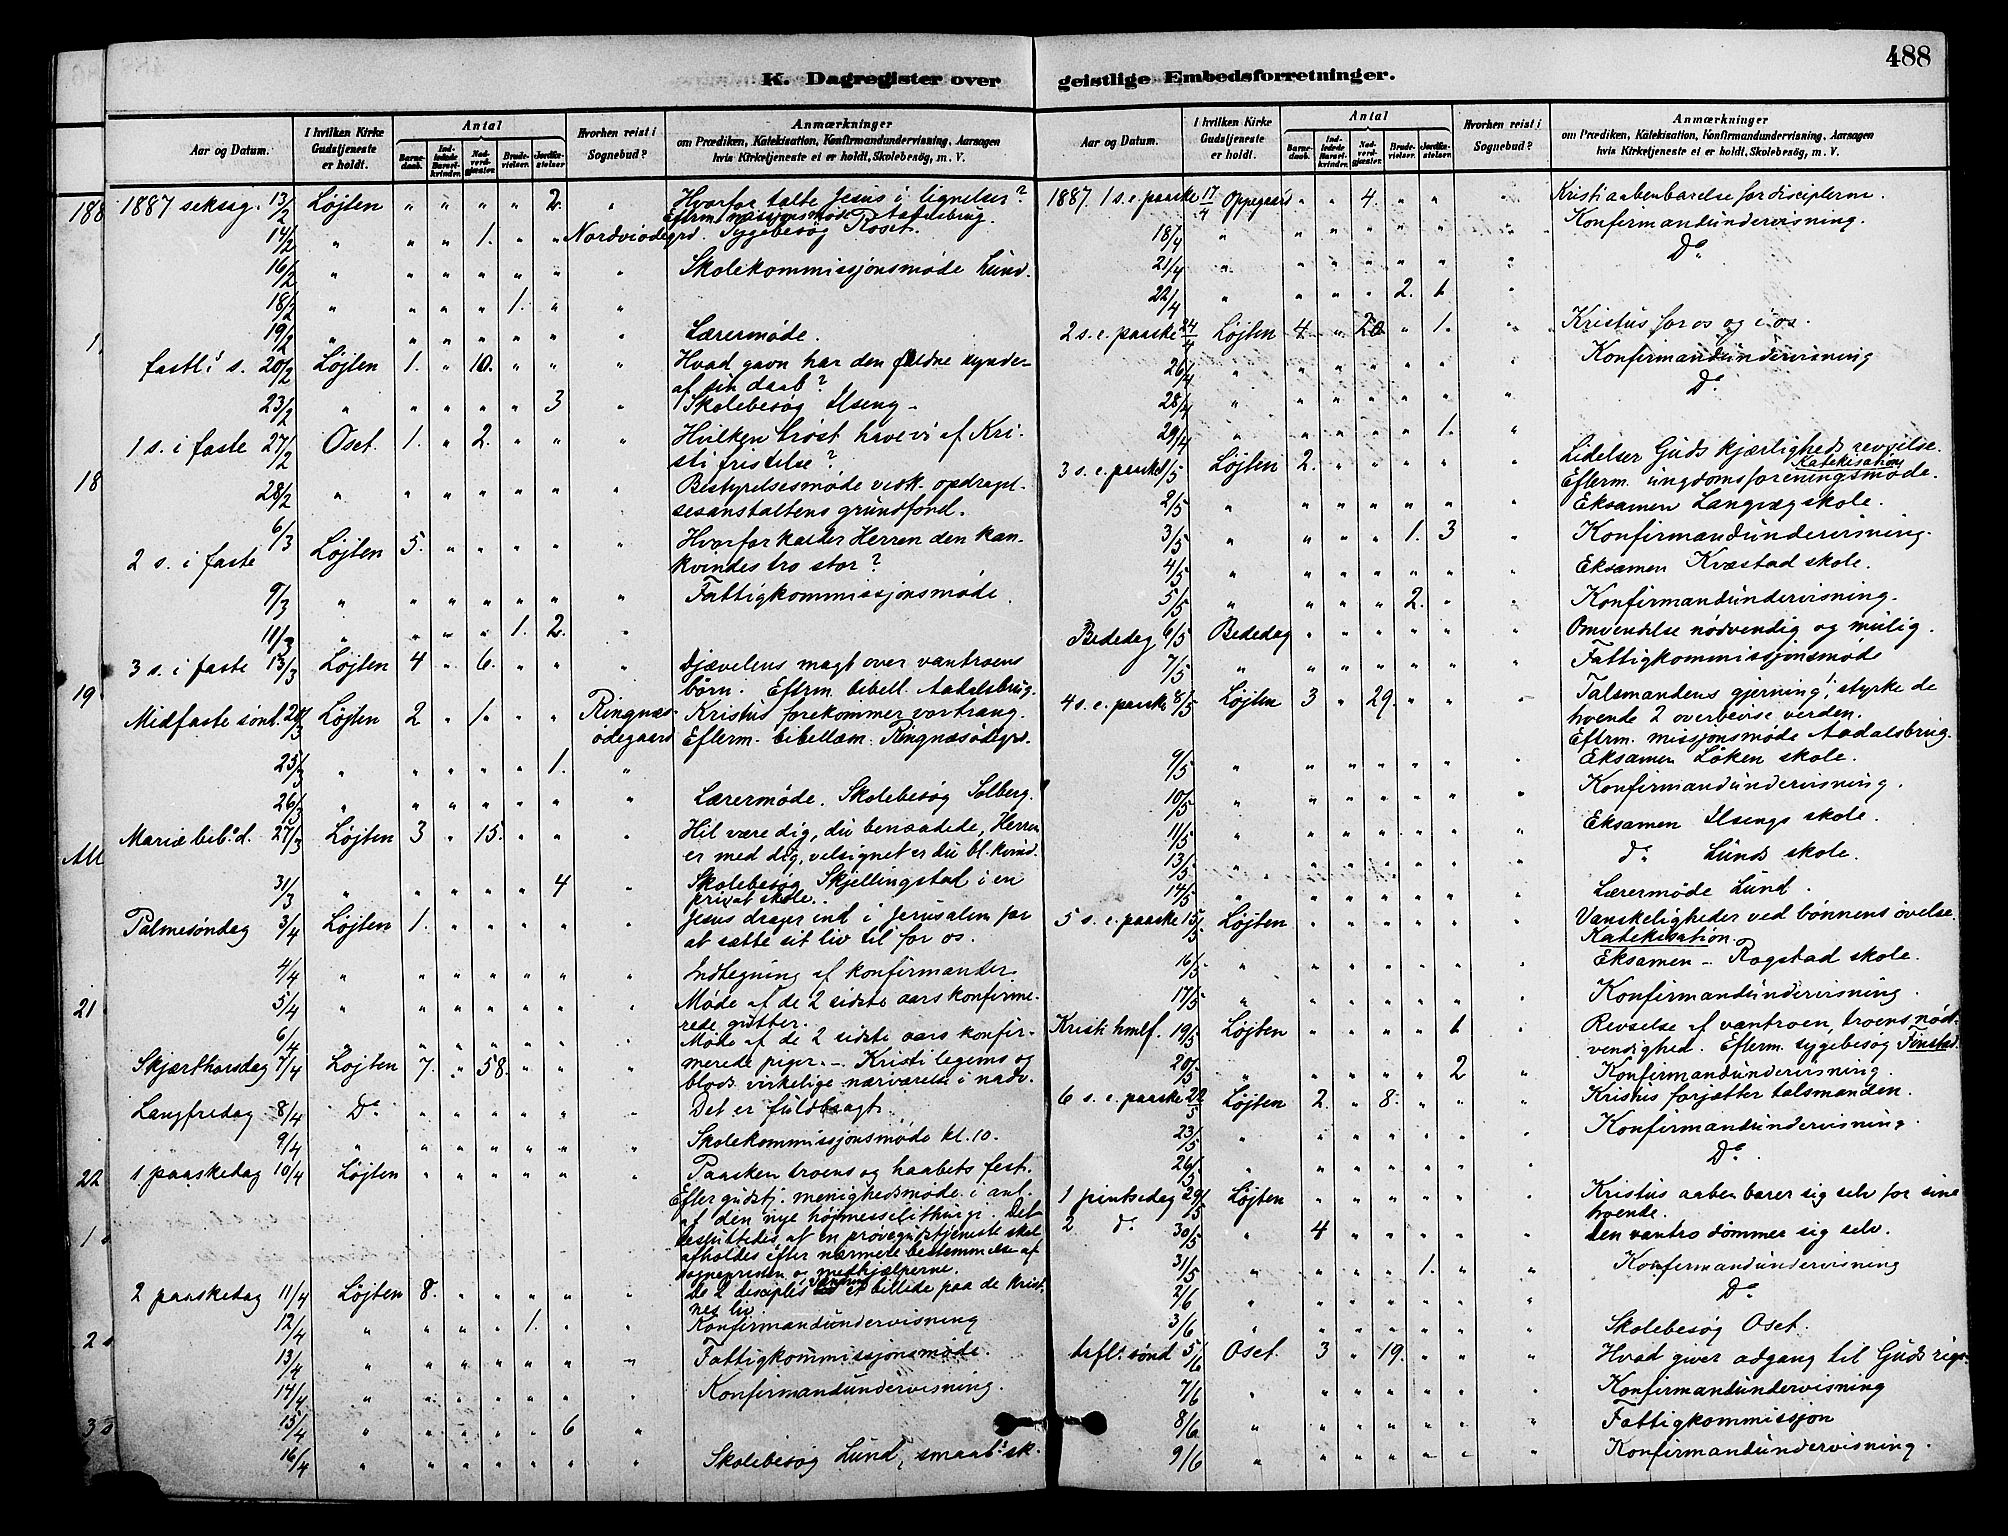 488
K. Dagregister over geistlige Embedsforretninger.
Aar og Datum. | I hvilken Kirke Gudstjeneste er holdt. | Antal | Barnedaab. | Indledede Barselkvinder. | Nadverdgjæster. | Brudevielser. | Jordfæstelser. | Hvorhen reist i Sognebud? | Anmærkninger om Prædiken, Katekisation, Konfirmandundervisning, Aarsagen hvis Kirketjeneste ei er holdt, Skolebesög, m. V.
1887 seksag. 13/2 Løjten " " " " 2. " Hvorfor talte Jesus i lignelser?
Efterm. missjonsmøde Aadalsbrug.
14/2 " " " 1. " " Nordviødegrd. Sygebesøg Roset.
16/2 " " " " " " " Skolekommissjonsmøde Lund.
18/2 " " " " 1. " "
19/2 " " " " " " " Lærermøde.
fastl.s s. 20/2 Løjten 1. " 10. " " " Hvad gavn har den faldne synder
af sin daab?
23/2 " " " " " 3 " Skolebesøg Ilseng.
1 s. i faste 27/2 Oset 1. " 2. " " " Hvilken trøst have vi af Kri-
sti fristelse?
28/2 " " " " " " " Bestyrelsesmøde vedk. opdragel-
sesanstaltens grundfond.
2 s. i faste 6/3 Løjten 5. " " " " " Hvorfor kalder Herren den kan.
kvindes tro stor?
9/3 " " " " " " " Fattigkommissjonsmøde.
11/3 " " " " 1. 2. "
3 s. i faste 13/3 Løjten 4 " 6. " " " Djævelens magt over vantroens
børn. Eftrm. bibell. Aadalsbrug.
Midfaste sønt. 20/3 Løjten 2 " 1. " " Ringnæs- Kristus forekommer vor trang.
ødegaard Efterm. bibellæsn. Ringnæsødegrd.
25/3 " " " " " 1. "
26/3 " " " " " " " Lærermøde. Skolebesøg Solberg.
Mariæ beb.d. 27/3 Løjten 3 " 15. " " " Hil være dig, du benaadede, Herren
er med dig, velsignet er du bl. kvind.
31/3 " " " " " 4 " Skolebesøg Skjellingstad i en
privat skole.
Palmesøndag 3/4 Løjten 1. " " " " " Jesus drager ind i Jerusalem for
at sætte sit liv til for os.
4/4 " " " " " " " Indtegning af konfirmander
5/4 " " " " " " " Møde af de 2 sidste aars konfirme-
rede gutter.
6/4 " " " " " " Møde af de 2 sidste aars konfir-
Skjærthorsdag 7/4 Løjten 7. " 58. " " " merede piger. - Kristi legems og
blods virkelige nærværelse i nadv.
Langfredag 8/4 Do " " " " " " Det er fuldbragt.
9/4 " " " " " " " Skolekommissjonsmøde kl. 10.
1 paaskedag 10/4 Løjten " " " " " " Paasken troens og haabets fest.
Efter gudstj. menighedsmøde i anl.
af den nye højmesselithurgi. Det
besluttedes, at en prøvegudstjeneste skal
afholdes efter nærmere bestemmelse af
sognepresten og medhjælperne.
2 paaskedag 11/4 Løjten 8. " " " " " De 2 disciples vandring et billede paa de krist-
nes liv
12/4 " " " " 1. " " Konfirmandundervisning
13/4 " " " " " " " Fattigkommissjonsmøde.
14/4 " " " " " " " Konfirmandundervisning.
15/4 " " " " " 6 "
16/4 " " " " " " " Skolebesøg Lund, smaab.s sk.
Aar og Datum. | I hvilken Kirke Gudstjeneste er holdt. | Antal | Barnedaab. | Indledede Barselkvinder. | Nadverdgjæster. | Brudevielser. | Jordfæstelser. | Hvorhen reist i Sognebud? | Anmærkninger om Prædiken, Katekisation, Konfirmandundervisning, Aarsagen hvis Kirketjeneste ei er holdt, Skolebesög, m. V.
1887. 1 s. e. paaske 17/4 Oppegaard " " 4. " " " Kristi aabenbarelse for disciplerne.
18/4 " " " " " " " Konfirmandundervisning.
21/4 " " " " " " " Do
22/4 " " " " 2. 1. "
2 s. e. paaske 24/4 Løjten 4. " 20 " 1. " Kristus for os og i os.
26/4 " " " " " " " Konfirmandundervisning
28/4 " " " " " " " Do
29/4 " " " " " 1. "
3 s. e. paaske 1/5 Løjten 2. " " " " " Lidelser Guds kjærligheds revselse.
Katekisation
Efterm. ungdomsforeningsmøde.
2/5 " " " " " " " Eksamen Langvæg skole.
3/5 " " " " 1. 3 " Konfirmandundervisning.
4/5 " " " " " " " Eksamen Kvæstad skole.
5/5 " " " " 2. " " Konfirmandundervisning.
Bededag 6/5 Bededag " " " " " " Omvendelse nødvendig og mulig.
7/5 " " " " " " " Fattigkommissjonsmøde
4 s. e. paaske 8/5 Løjten 3 " 29. " " " Talsmandens gjerning 1, styrke de
troende 2 overbevise verden.
Eftrm. missjonsmøde Aadalsbrug.
9/5 " " " " " " " Eksamen Løken skole.
10/5 " " " " " " " Konfirmandundervisning.
11/5 " " " " " " " Eksamen Ilsengs skole.
13/5 " " " " " " " do Lunds skole.
14/5 " " " " " " " Lærermøde Lund.
5 s. e. paaske 15/5 Løjten " " " " " " Vanskeligheder ved bønnens øvelse.
Katekisation.
16/5 " " " " " " " Eksamen - Rogstad skole.
17/5 " " " " " " " Konfirmandundervisning.
Kristi hmlf. 19/5 Løjten " " " " 1 " Revselse af vantroen, troens nød-
vendighed. Efterm. sygebesøg Finstad.
20/5 " " " " " 2 " Konfirmandundervisning.
6 s. e. paaske 22/5 Løjten 2. " 8. " " " Kristus forjætter talsmanden.
23/5 " " " " " " " Konfirmandundervisning.
26/5 " " " " " " " Do
1 pintsedag 29/5 Løjten " " " " " " Kristus aabenbarer sig selv for sine
troende.
2 do 30/5 " 4 " " " " " Den vantro dømmer sig selv.
31/5 " " " " 1. " " Konfirmandundervisning
2/6 " " " " " " " Do
3/6 " " " " " " " Skolebesøg Oset.
trefl. sønd 5/6 Oset. 3 " 19. " " " Hvad giver adgang til Guds rige.
7/6 " " " " " " " Konfirmandundervisning
8/6 " " " " " " " Fattigkommissjon
9/6 " " " " " " " Konfirmandundervisning.